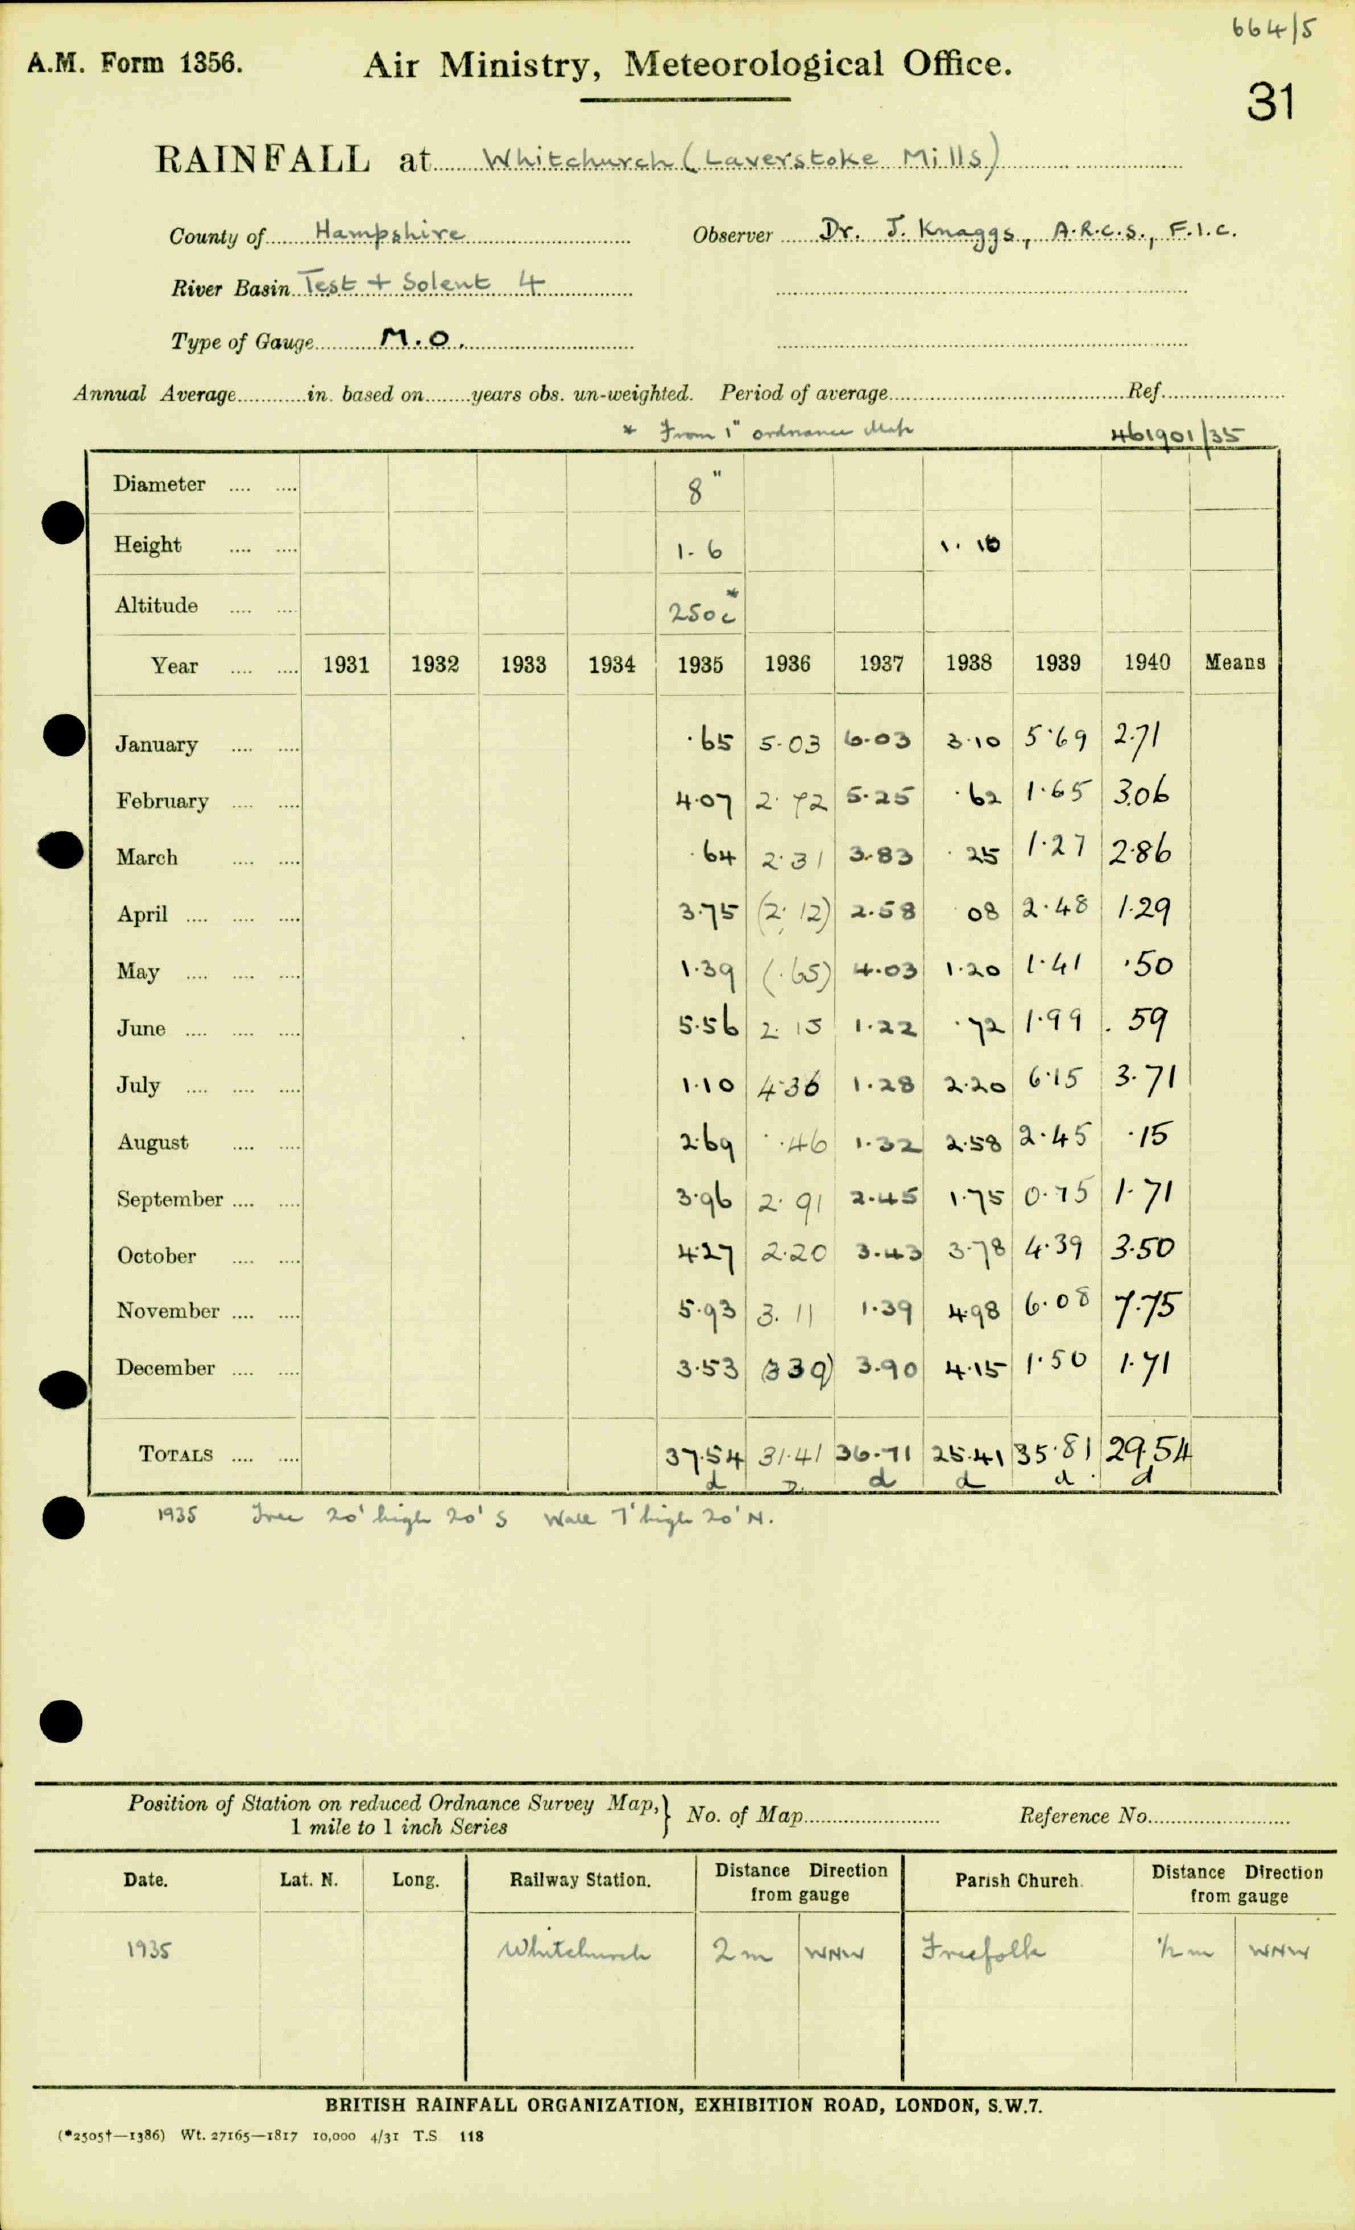 664/5
A.M. Form 1356. Air Ministry, Meteorological Office.
31
RAINFALL at Whitchurch (Laverstoke Mills)
County of Hampshire Observer Dr. J. Knaggs, A.R.C.S., F.I.C.
River Basin Test + Solent 4
Type of Gauge M.O.
Annual Average in. based on years obs. un-weighted. Period of average Ref.
* From 1" ordnance Map 461901/35
Diameter 8"
Height 1-6 1.10
Altitude 250c*
Year 1931 1932 1933 1934 1935 1936 1937 1938 1939 1940 Means
January .65 5.03 6.03 3.10 5.69 2.71
February 4.07 2.72 5.25 .62 1.65 3.06
March .64 2.31 3.83 .25 1.27 2.86
April 3.75 (2.12) 2.58 08 2.48 1.29
May 1.39 (.65) 4.03 1.20 1.41 .50
June 5.56 2.15 1.22 .72 1.99 .59
July 1.10 4.36 1.28 2.20 6.15 3.71
August 2.69 .46 1.32 2.58 2.45 .15
September 3.96 2.91 2.45 1.75 0.75 1.71
October 4.27 2.20 3.43 3.78 4.39 3.50
November 5.93 3.11 1.39 4.98 6.08 7.75
December 3.53 (3 39) 3.90 4.15 1.50 1.71
TOTALS 37.54 31.41 36.71 25.41 35.81 29.54
d D. d d d d
1935 Tree 20' high 20' S Wall 7' high 20' N.
Position of Station on reduced Ordnance Survey Map, } No. of Map Reference No.
1 mile to 1 inch Series
Date. Lat. N. Long. Railway Station. Distance Direction from gauge Parish Church. Distance Direction from gauge
1935 Whitchurch 2 m WNW Freefolk ½ m WNW
BRITISH RAINFALL ORGANIZATION, EXHIBITION ROAD, LONDON, S.W.7.
(*2505†—1386) Wt. 27165—1817 10,000 4/31 T.S 118